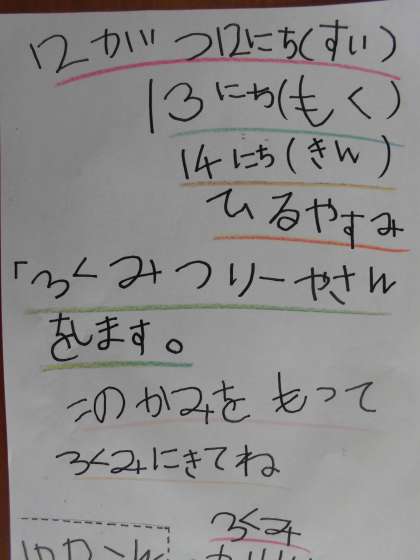 12がつ12にち(すい)
13にち(もく)
14にち(きん)
ひるやすみ
「ろくみつリーやさん
をします。
このかみをもって
ろくみにきてね
ろくみ